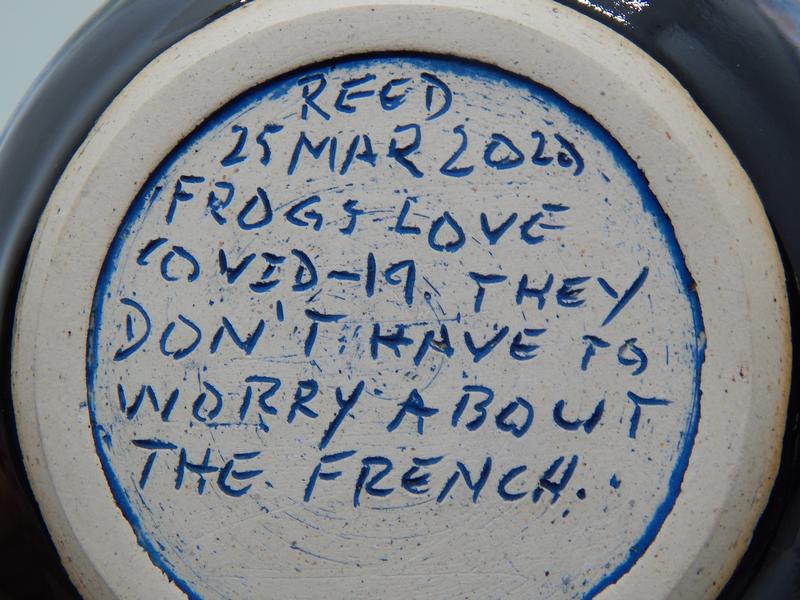 REED
25 MAR 2020
FROGS LOVE
COVID-19. THEY
DON'T HAVE TO
WORRY ABOUT
THE FRENCH.